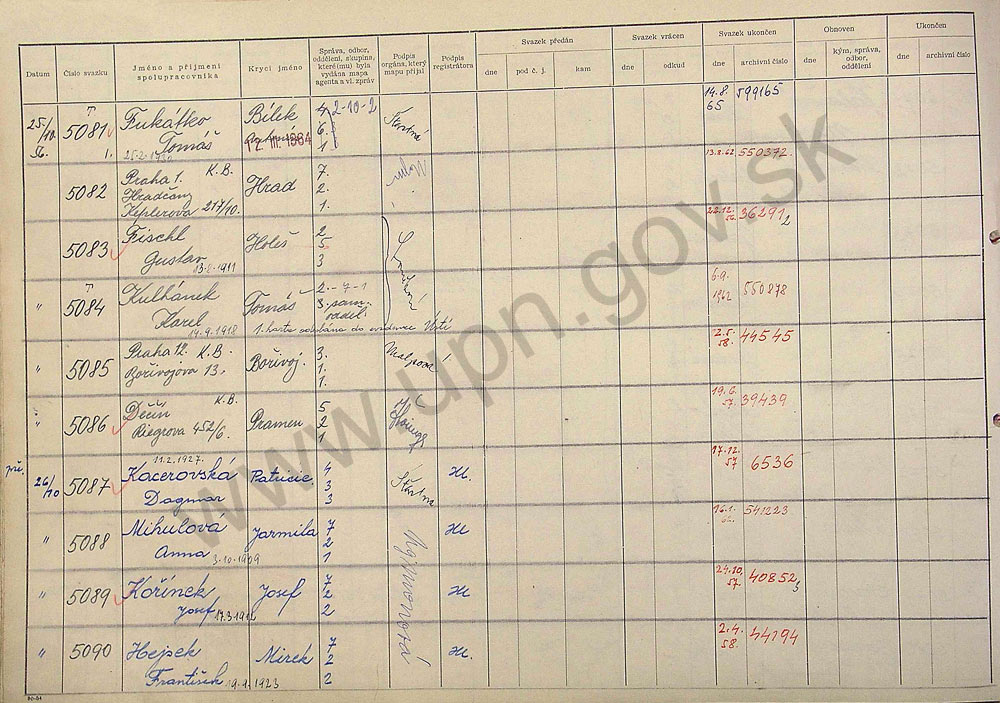 Datum
Číslo svazku
Jméno a příjmení spolupracovníka
Krycí jméno
Správa, odbor, oddělení, skupina, které(mu) byla vydána mapa agenta a vl. zpráv
Podpis orgána, který mapu přijal
Podpis registrátora
Svazek předán
dne
pod č. j.
kam
Svazek vrácen
dne
odkud
Svazek ukončen
dne
archivní číslo
Obnoven
kým, správa, odbor, oddělení
Ukončen
dne
archivní číslo
25/10. 56. 5081 Fukátko Bílek 4 2-10-2 Šťastná 14.8. 65 599165
1. Tomáš 12. III. 1964 6. 1
5082 Praha 1. K.B. Hrad 7. 13.8.62 550372.
Hradčany 2.
Keplerova 217/10. 1.
5083 Fischl Holeš 2 22.12. 36291
Gustav 5
1911 3
" 5084 Kulhánek Tomáš 2.-7-1 6.9. 1962 550878
Karel 3. sam. odděl.
14.9.1918 1. karta odeslána do evidence Ústí
" 5085 Praha 12. K.B. Bořivoj. 3. 2.5. 58. 44545
Bořivojova 13. 1.
1.
" 5086 Děčín K.B. Pramen 5 19.6. 57. 39439
Riegrova 452/6. 2
26/10 5087 11.2.1927. Patricie 4 Šťastná 17.12. 57 6536
Kacerovská 3
Dagmar 3
" 5088 Mihulová Jarmila 7 16.1. 62. 541223
Anna 3.10.1909 2
1
" 5089 Kořínek Josef 7 24.10. 57. 40852
Josef 2
2
" 5090 Hejsek Mirek 7 2.4. 58. 44194
František 19.9.1923 2
2
www.upn.gov.sk